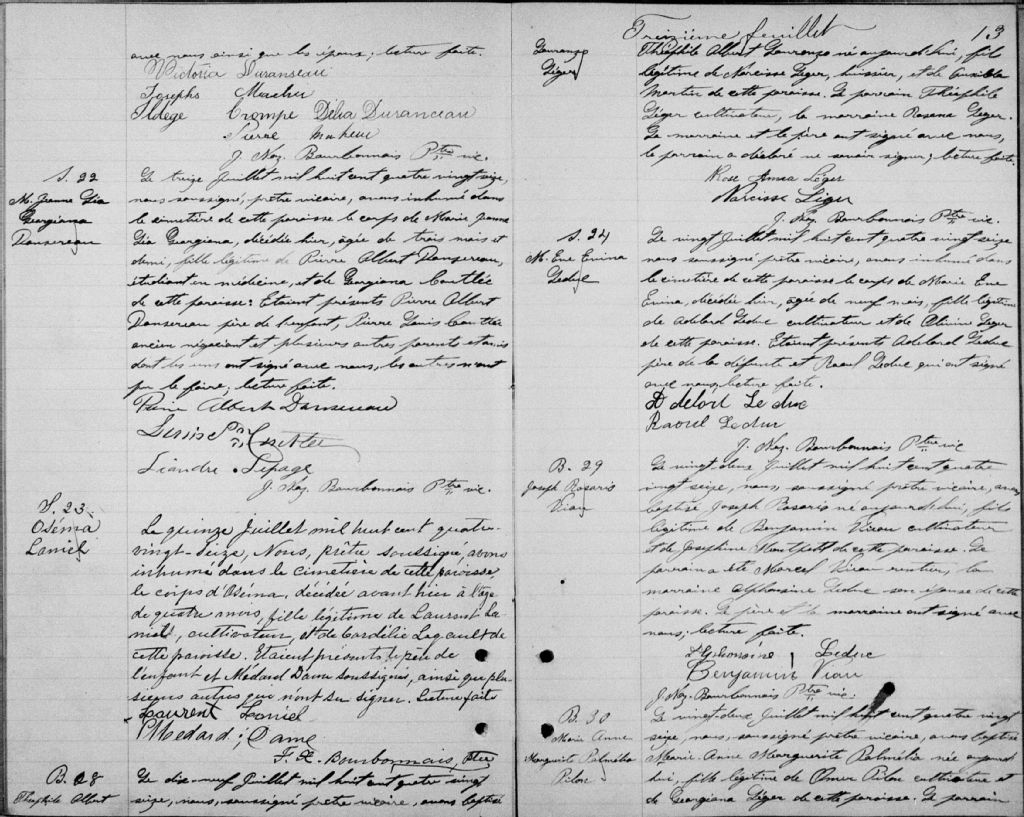 avec nous ainsi que les époux; lecture faite.
Victoria Duranseau
Josephs Macheu
Ildege Crompe Délia Duranceau
Pierre Maheu
J. Naz. Bourbonnais Ptre vic.
S. 22
M. Jeanne Lia
Georgiana
Dansereau
Le treize Juillet mil huit cent quatre vingt seize,
nous, soussigné, prêtre vicaire, avons inhumé dans
le cimetière de cette paroisse le corps de Marie Jeanne
Lia Georgiana, décédée hier, âgée de trois mois et
demi, fille légitime de Pierre Albert Dansereau,
étudiant en médecine, et de Georgiana Couttée
de cette paroisse: Etaient présents Pierre Albert
Dansereau père de l'enfant, Pierre Louis Couttée
ancien négociant et plusieurs autres parents et amis
dont les uns ont signé avec nous, les autres n'ont
pu le faire; lecture faite.
Pierre Albert Dansereau
Louis
Liandre Lepage
J. Naz. Bourbonnais Ptre vic.
S. 23.
Oséma
Laniel
Le quinze Juillet mil huit cent quatre-
vingt-seize, Nous, prêtre soussigné, avons
inhumé dans le cimetière de cette paroisse,
le corps d'Oséma, décédée avant hier à l'âge
de quatre mois, fille légitime de Laurent La-
niel, cultivateur, et de Cordélie Legault de
cette paroisse. Etaient présents le père de
l'enfant et Médard Dame soussignés, ainsi que plu-
sieurs autres qui n'ont su signer. Lecture faite
Laurent Laniel
Medard Dame
J. E. Bourbonnais, Ptre
B. 28
Théophile Albert
Le dix-neuf Juillet mil huit cent quatre vingt
seize, nous, soussigné prêtre vicaire, avons baptisé
Treizième feuillet 13
Gouronzo
Léger
Théophile Albert Gouronzo né aujourd'hui, fils
légitime de Narcisse Léger, huissier, et de
Martin de cette paroisse. Le parrain Théophile
Léger cultivateur, la marraine Rosena Léger.
La marraine et le père ont signé avec nous,
le parrain a déclaré ne savoir signer; lecture faite.
Rose Anna Léger
Narcisse Léger
J. Naz. Bourbonnais Ptre vic.
S. 24
M. Eve Enina
Leduc
Le vingt Juillet mil huit cent quatre vingt seize
nous soussigné prêtre vicaire, avons inhumé dans
le cimetière de cette paroisse le corps de Marie Eve
Enina, décédée hier, âgée de neuf mois, fille légitime
de Adélard Leduc cultivateur et de Léger
de cette paroisse. Etaient présents Adélard Leduc
père de la défunte et Raoul Leduc qui ont signé
avec nous, lecture faite.
Adelord Leduc
Raoul Leduc
J. Naz. Bourbonnais Ptre vic
B. 29
Joseph Rosario
Viau
Le vingt-deux Juillet mil huit cent quatre
vingt seize, nous, soussigné prêtre vicaire, avons
baptisé Joseph Rosario né aujourd'hui, fils
légitime de Benjamin Viau cultivateur
et de Josephine Montpetit de cette paroisse. Le
parrain a été Marcel Viau rentier, la
marraine Alphonsine Leduc son épouse de cette
paroisse. Le père et la marraine ont signé avec
nous; lecture faite.
Alphonsine Leduc
Benjamin Viau
J. Naz. Bourbonnais Ptre vic.
B. 30
Marie Anne
Marguerite Palmélia
Pilon
Le vingt-deux Juillet mil huit cent quatre vingt
seize, nous, soussigné prêtre vicaire, avons baptisé
Marie Anne Marguerite Palmélia née aujourd'
hui, fille légitime de Omer Pilon cultivateur et
de Georgiana Léger de cette paroisse. Le parrain